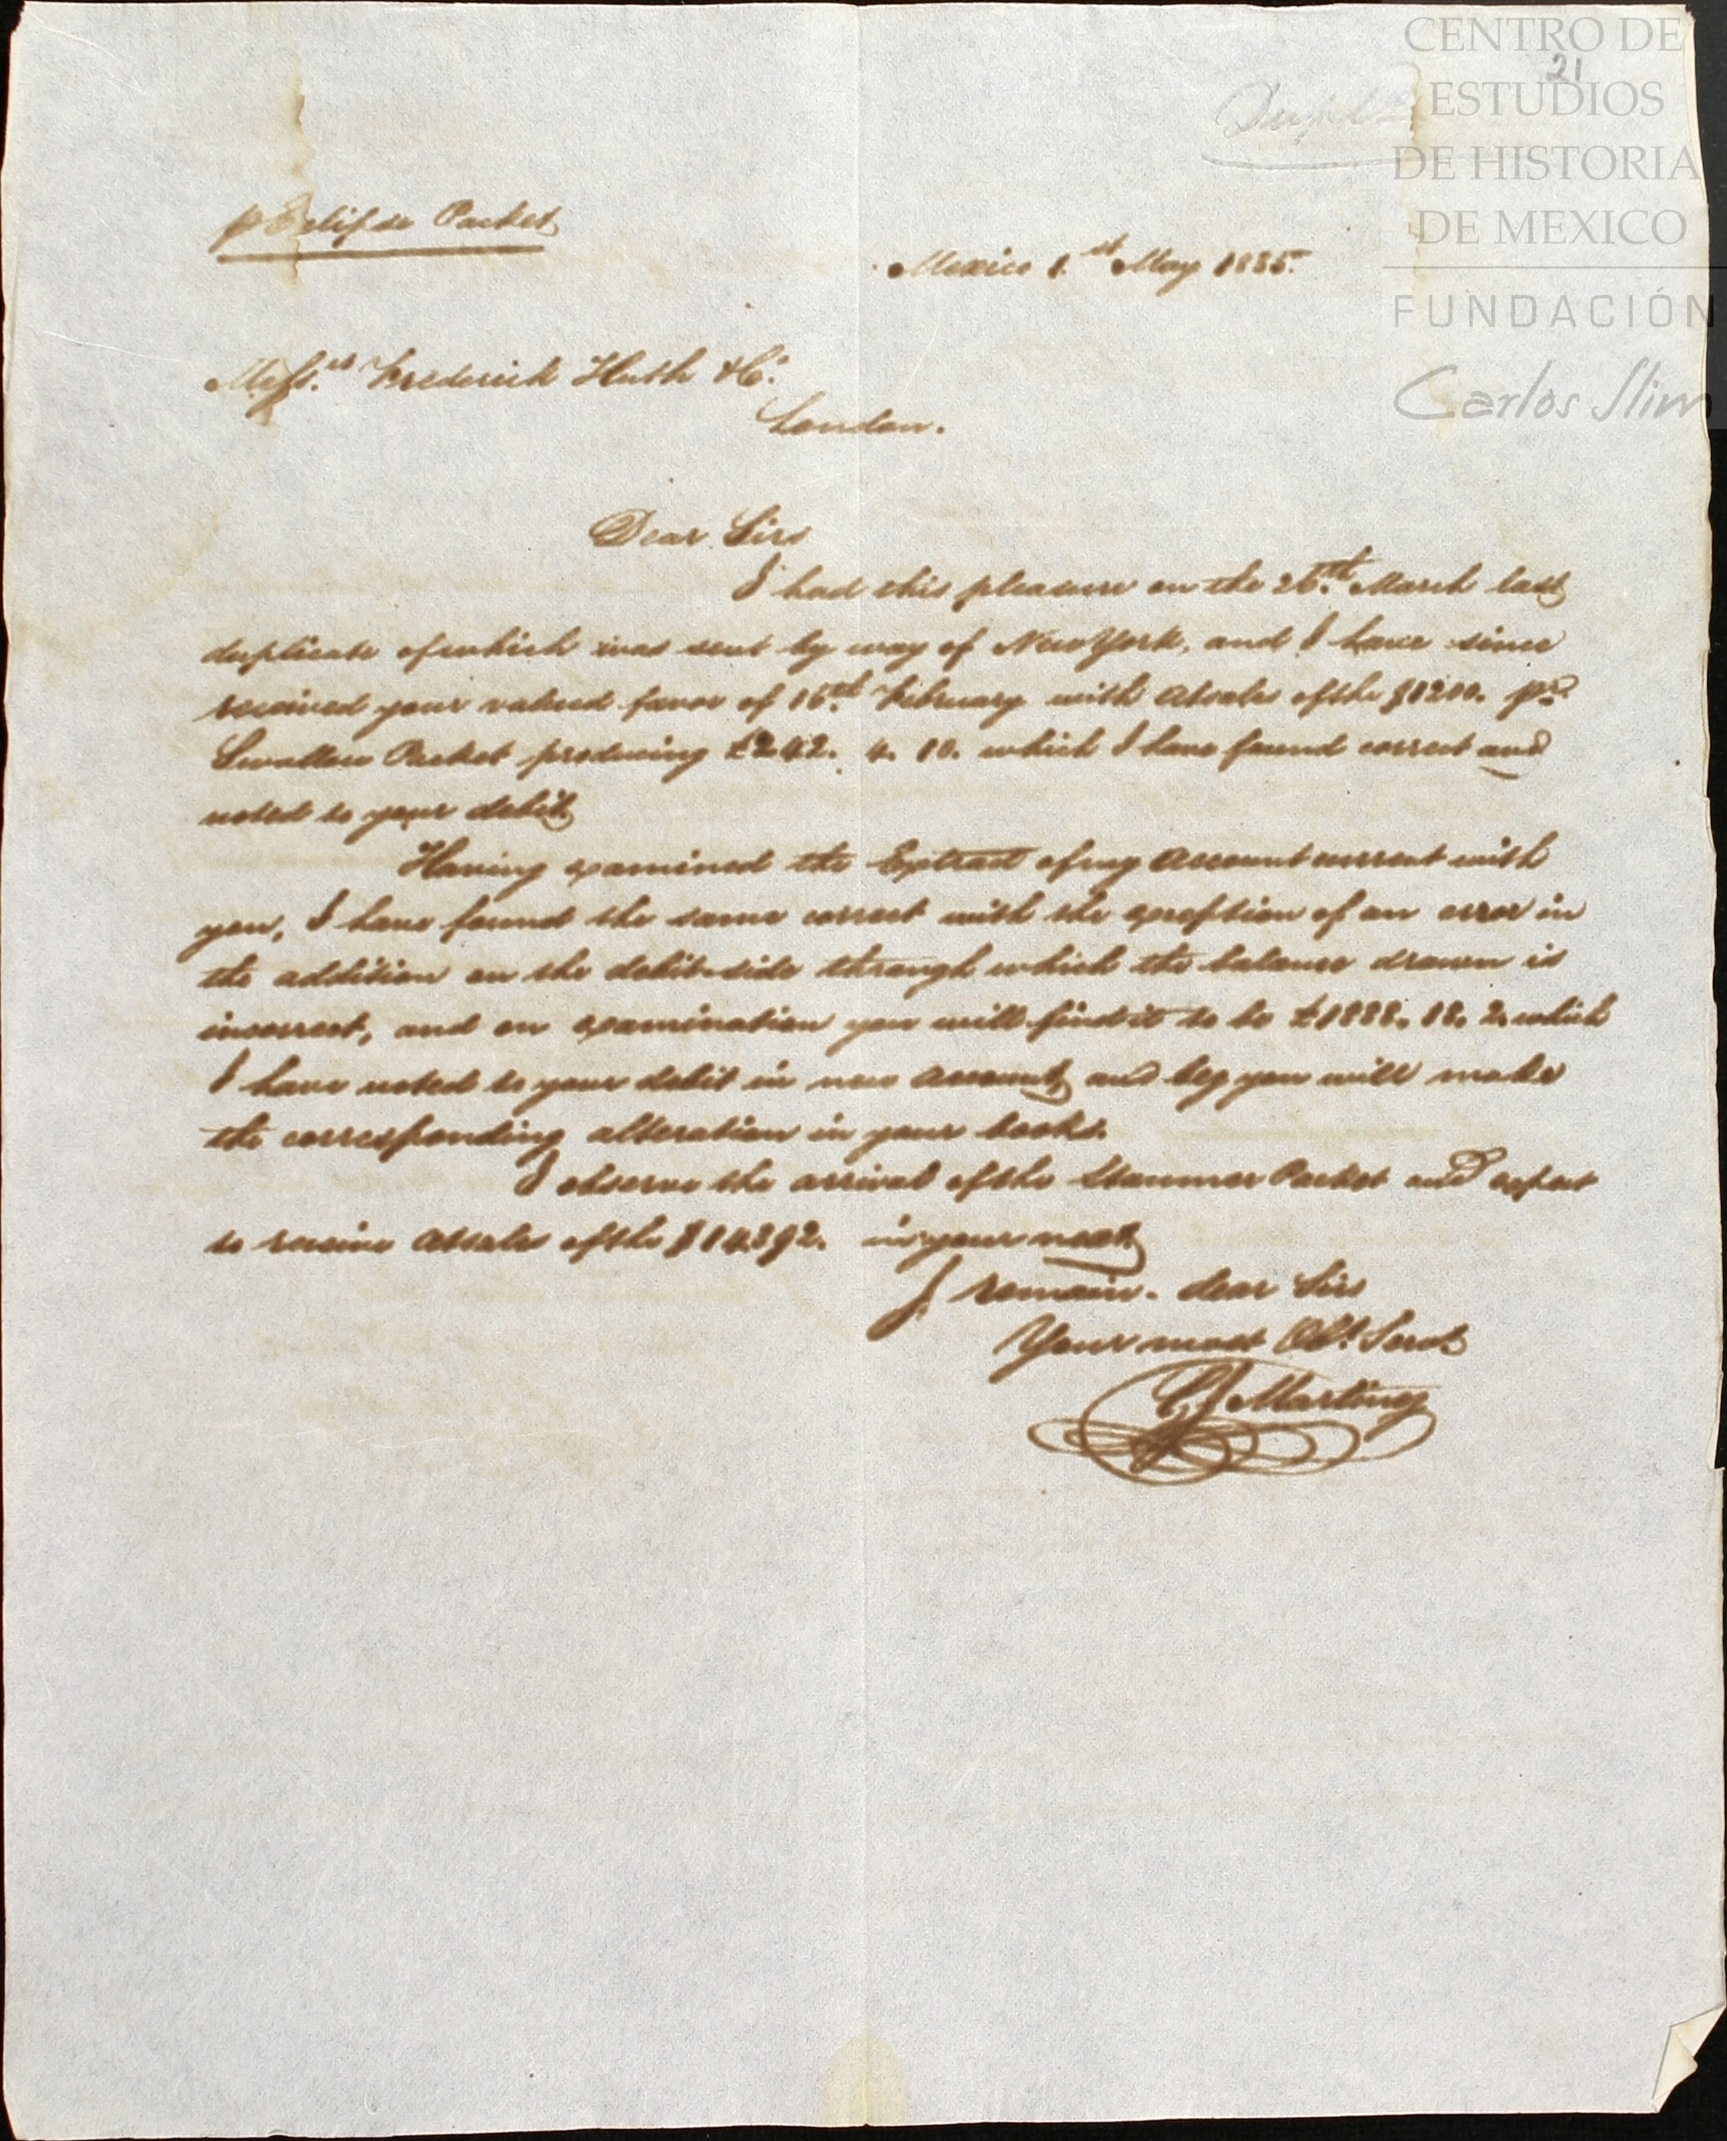 CENTRO DE
21
ESTUDIOS
DE HISTORIA
DE MEXICO
FUNDACIÓN
Carlos Slim
p Eclipse Packet
Mexico 1.st May 1835.
Messrs Frederick Huth & Co.
London.
Dear Sirs
I had this pleasure on the 26.th March last
duplicate of which was sent by way of New York, and I have since
received your valued favor of 16.th February with A/sales of the $1200. pr
Swallow Packet producing £242. 4. 10. which I have found correct and
noted to your debit.
Having examined the Extract of my Account current with
you, I have found the same correct with the exception of an error in
the addition on the debit-side through which the balance drawn is
incorrect, and on examination you will find it to be £1888. 18. 2. which
I have noted to your debit in new account, and beg you will make
the corresponding alteration in your books.
I observe the arrival of the Packet and expect
to receive A/sales of the in your next.
I remain. dear Sirs
Your most Obt. Servt